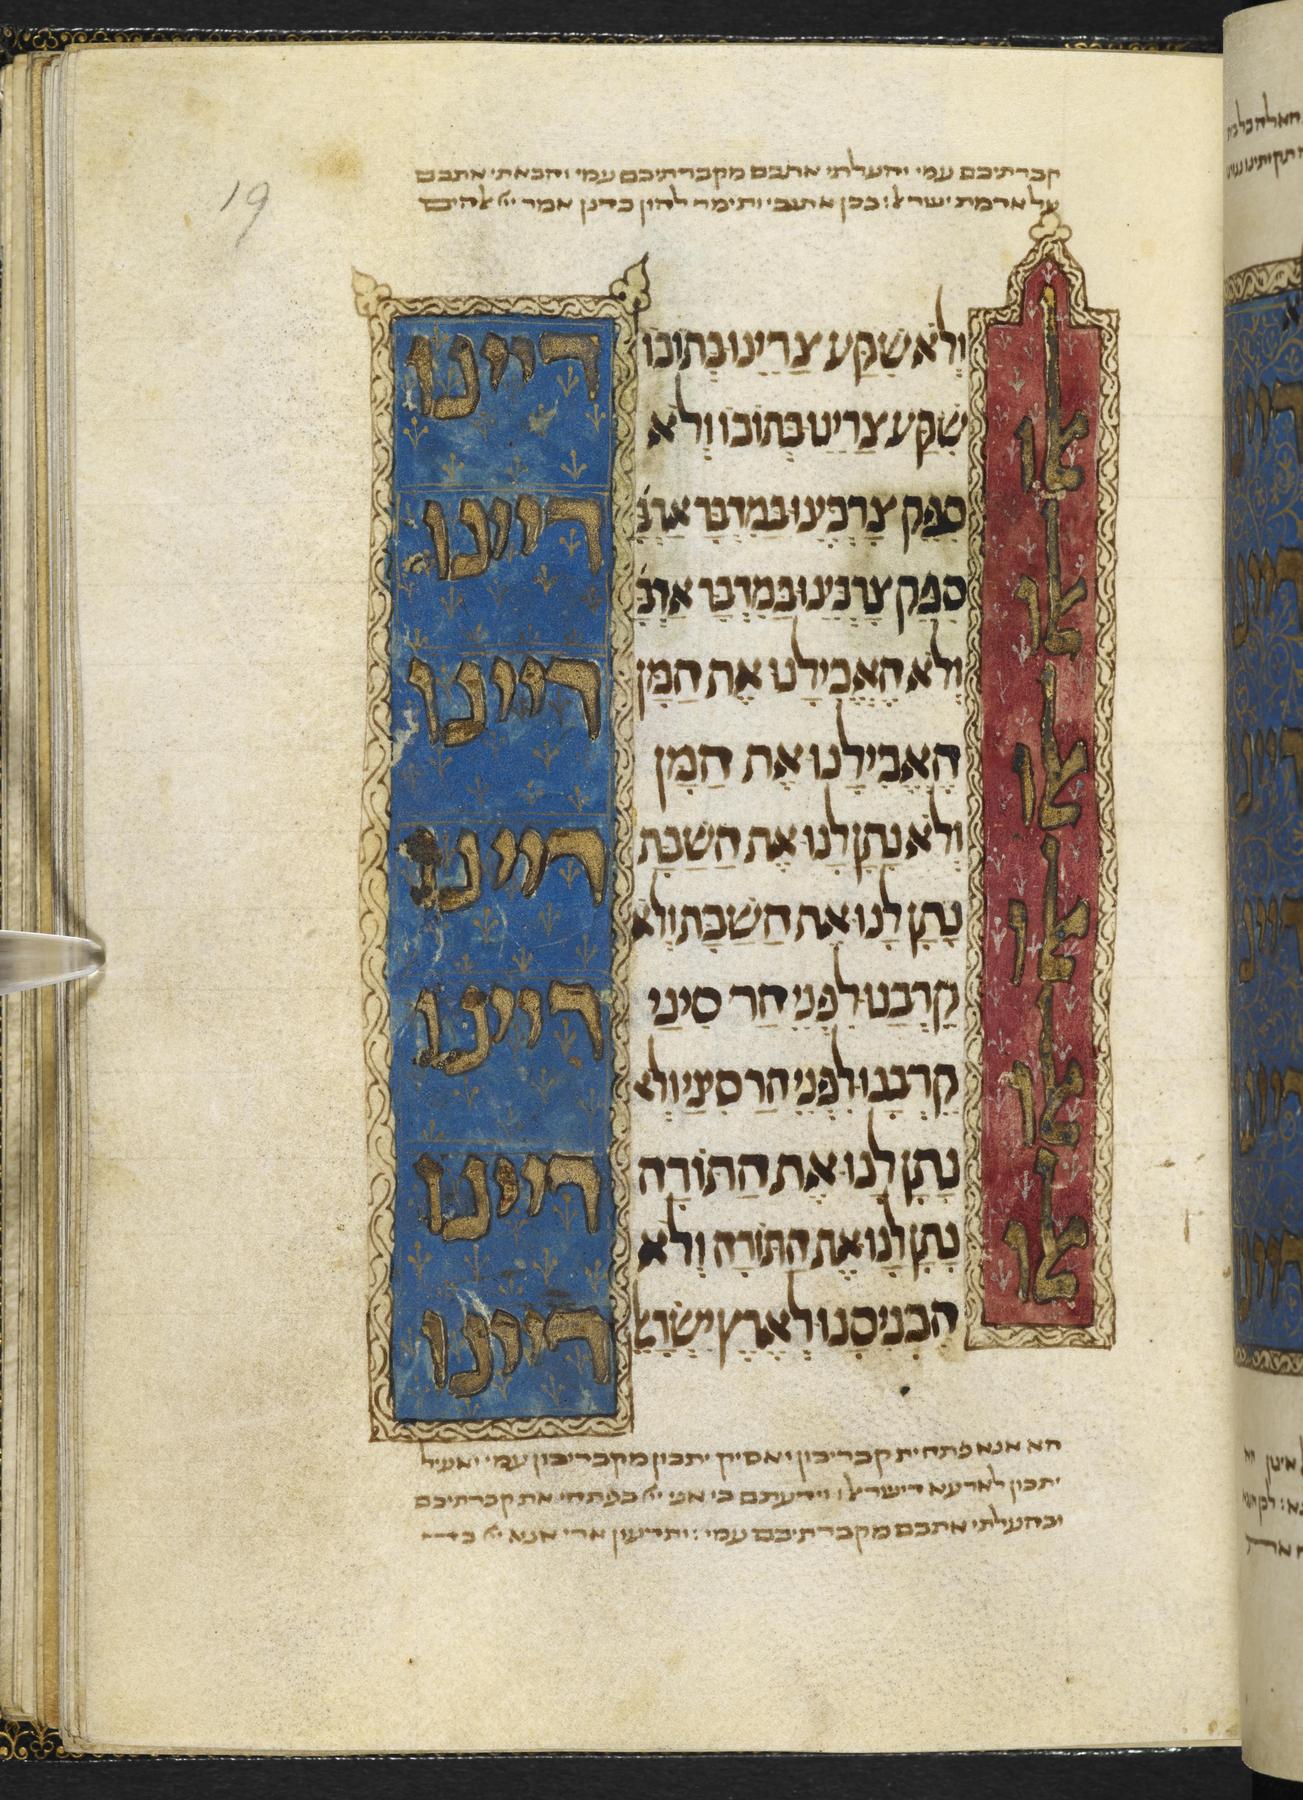 19
קברתיכם עמי והעלתי אתכם מקברתיכם עמי והבאתי אתכם
על אדמת ישראל: בכן אתנבי ותימר להון כדנן אמר
אלו
אלו
אלו
אלו
אלו
אלו
וְלֹא שִׁקַּע צָרֵינוּ בְּתוֹכוֹ
דיינו
שִׁקַּע צָרֵינוּ בְּתוֹכוֹ וְלֹא
סִפֵּק צָרְכֵּינוּ בַּמִּדְבָּר אַרְבָּ
דיינו
סִפֵּק צָרְכֵּינוּ בַּמִּדְבָּר אַרְבָּ
וְלֹא הֶאֱכִילָנוּ אֶת הַמָּן
דיינו
הֶאֱכִילָנוּ אֶת הַמָּן
וְלֹא נָתַן לָנוּ אֶת הַשַּׁבָּת
דיינו
נָתַן לָנוּ אֶת הַשַּׁבָּת וְלֹא
קֵרְבָנוּ לִפְנֵי הַר סִינַי
דיינו
קֵרְבָנוּ לִפְנֵי הַר סִינַי וְלֹא
נָתַן לָנוּ אֶת הַתּוֹרָה
דיינו
נָתַן לָנוּ אֶת הַתּוֹרָה וְלֹא
הִכְנִיסָנוּ לְאֶרֶץ יִשְׂרָאֵל
דיינו
הא אנא פתח ית קבריכון ואסיק יתכון מקבריכון עמי ואעיל
יתכון לארעא דישראל: וידעתם כי אני בפתחי את קברתיכם
ובהעלתי אתכם מקברתיכם עמי: ותדעון ארי אנא